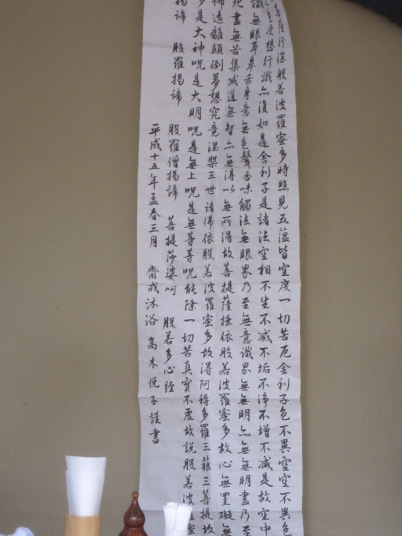 薩行深般若波羅蜜多時照見五蘊皆空度一切苦厄舍利子色不異空空不異色
受想行識亦復如是舍利子是諸法空相不生不滅不垢不淨不增不減是故空中
識無眼耳鼻舌身意無色聲香味觸法無眼界乃至無意識界無無明亦無無明盡乃至
死盡無苦集滅道無智亦無得以無所得故菩提薩埵依般若波羅蜜多故心無罣礙無
怖遠離顛倒夢想究竟涅槃三世諸佛依般若波羅蜜多故得阿耨多羅三藐三菩提故
多是大神呪是大明呪是無上呪是無等等呪能除一切苦真實不虛故說般若波羅蜜
揭諦 般羅揭諦 般羅僧揭諦 菩提莎婆呵 般若多心經
平成十五年孟春三月 齋戒沐浴 高木悦子謹書